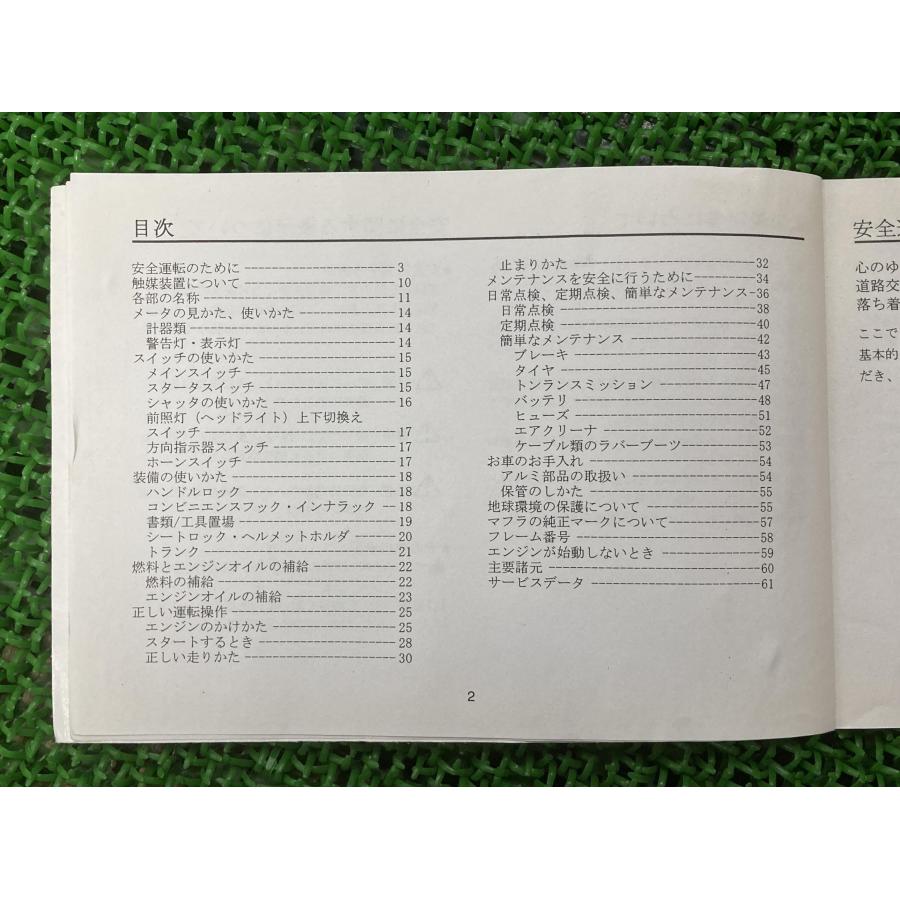 目次
安全運転のために ---------------------- 3
触媒装置について ---------------------- 10
各部の名称 ---------------------- 11
メータの見かた、使いかた -------------- 14
計器類 ---------------------- 14
警告灯・表示灯 ---------------------- 14
スイッチの使いかた -------------------- 15
メインスイッチ ---------------------- 15
スタータスイッチ -------------------- 15
シャッタの使いかた ------------------ 16
前照灯（ヘッドライト）上下切換え
スイッチ ---------------------- 17
方向指示器スイッチ ------------------ 17
ホーンスイッチ ---------------------- 17
装備の使いかた ---------------------- 18
ハンドルロック ---------------------- 18
コンビニエンスフック・インナラック -- 18
書類/工具置場 ---------------------- 19
シートロック・ヘルメットホルダ ------ 20
トランク ---------------------- 21
燃料とエンジンオイルの補給 ------------ 22
燃料の補給 ---------------------- 22
エンジンオイルの補給 ---------------- 23
正しい運転操作 ---------------------- 25
エンジンのかけかた ------------------ 25
スタートするとき -------------------- 28
正しい走りかた ---------------------- 30
止まりかた ---------------------- 32
メンテナンスを安全に行うために--------- 34
日常点検、定期点検、簡単なメンテナンス-36
日常点検 ---------------------- 38
定期点検 ---------------------- 40
簡単なメンテナンス ------------------ 42
ブレーキ ---------------------- 43
タイヤ ---------------------- 45
トンランスミッション -------------- 47
バッテリ ---------------------- 48
ヒューズ ---------------------- 51
エアクリーナ ---------------------- 52
ケーブル類のラバーブーツ----------- 53
お車のお手入れ ---------------------- 54
アルミ部品の取扱い ------------------ 54
保管のしかた ---------------------- 55
地球環境の保護について ---------------- 55
マフラの純正マークについて------------- 57
フレーム番号 ---------------------- 58
エンジンが始動しないとき -------------- 59
主要諸元 ---------------------- 60
サービスデータ ---------------------- 61
2
安全
心のゆ
道路交
落ち着
ここで
基本的
だき、